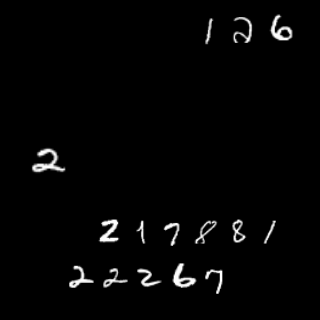 126
2
217881
22267